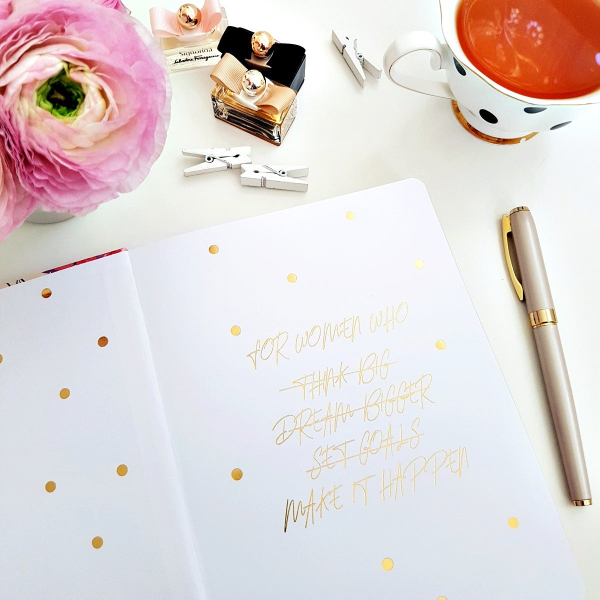 Signorina
Salvatore Ferragamo
FOR WOMEN WHO
THINK BIG
DREAM BIGGER
SET GOALS
MAKE IT HAPPEN